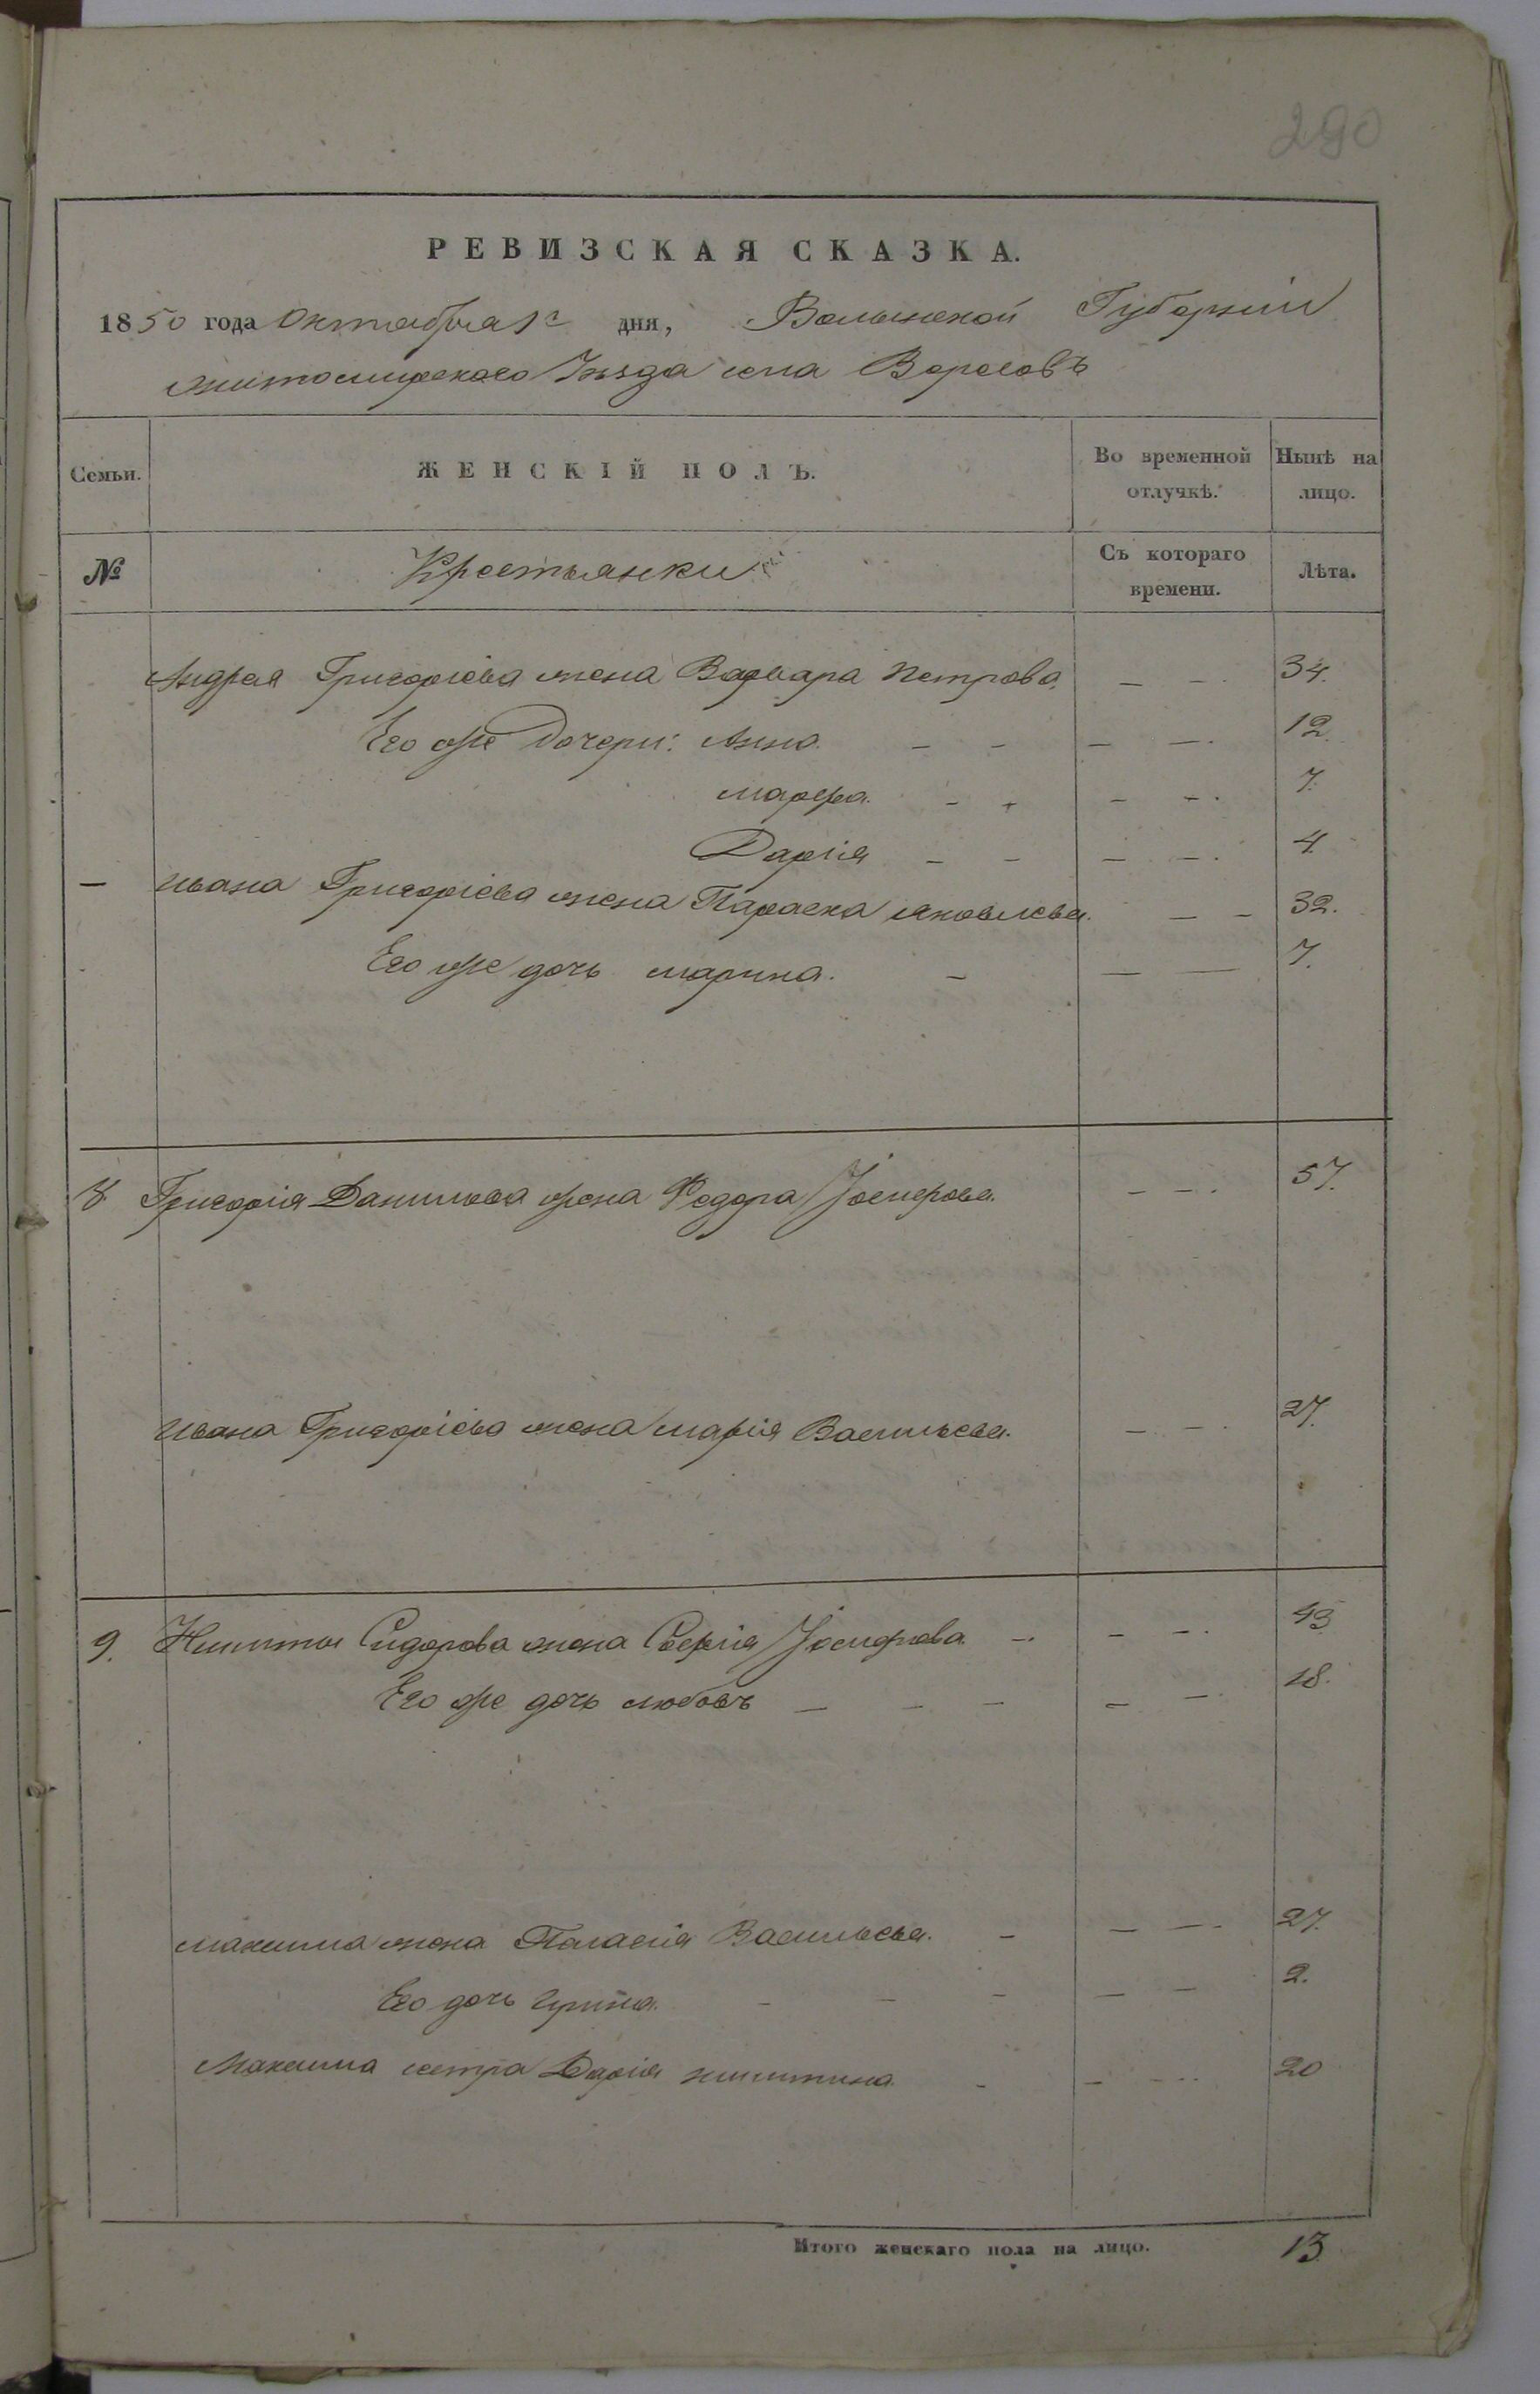 290
РЕВИЗСКАЯ СКАЗКА.
1850 года Октября 1го дня, Волынской Губерніи
Житомирскаго Уѣзда села Ворсовъ
Семьи. ЖЕНСКІЙ ПОЛЪ. Во временной отлучкѣ. Нынѣ на лицо.
№ Крестьянки Съ котораго времени. Лѣта.
Андрея Григорієва жена Варвара Петрова — — 34.
Его же Дочери: Анна — — — — 12.
Марфа. — — — — 7.
Дарія — — — — 4.
— Ивана Григорієва жена Параска Яковлева. — — 32.
Его же дочь Марина. — — — 7.
8 Григорія Данилова жена Федора — — 57.
Ивана Григорієва жена Марія Васильева. — — 27.
9. Никиты Сидорова жена Софія — — — 43
Его же дочь Любовъ — — — — — 18.
Максима жена Пелагія Васильева. — — — 27.
Его дочь Ирина. — — — — — 2.
Максима сестра Дарія Никитина — — — 20
Итого женскаго пола на лицо. 13